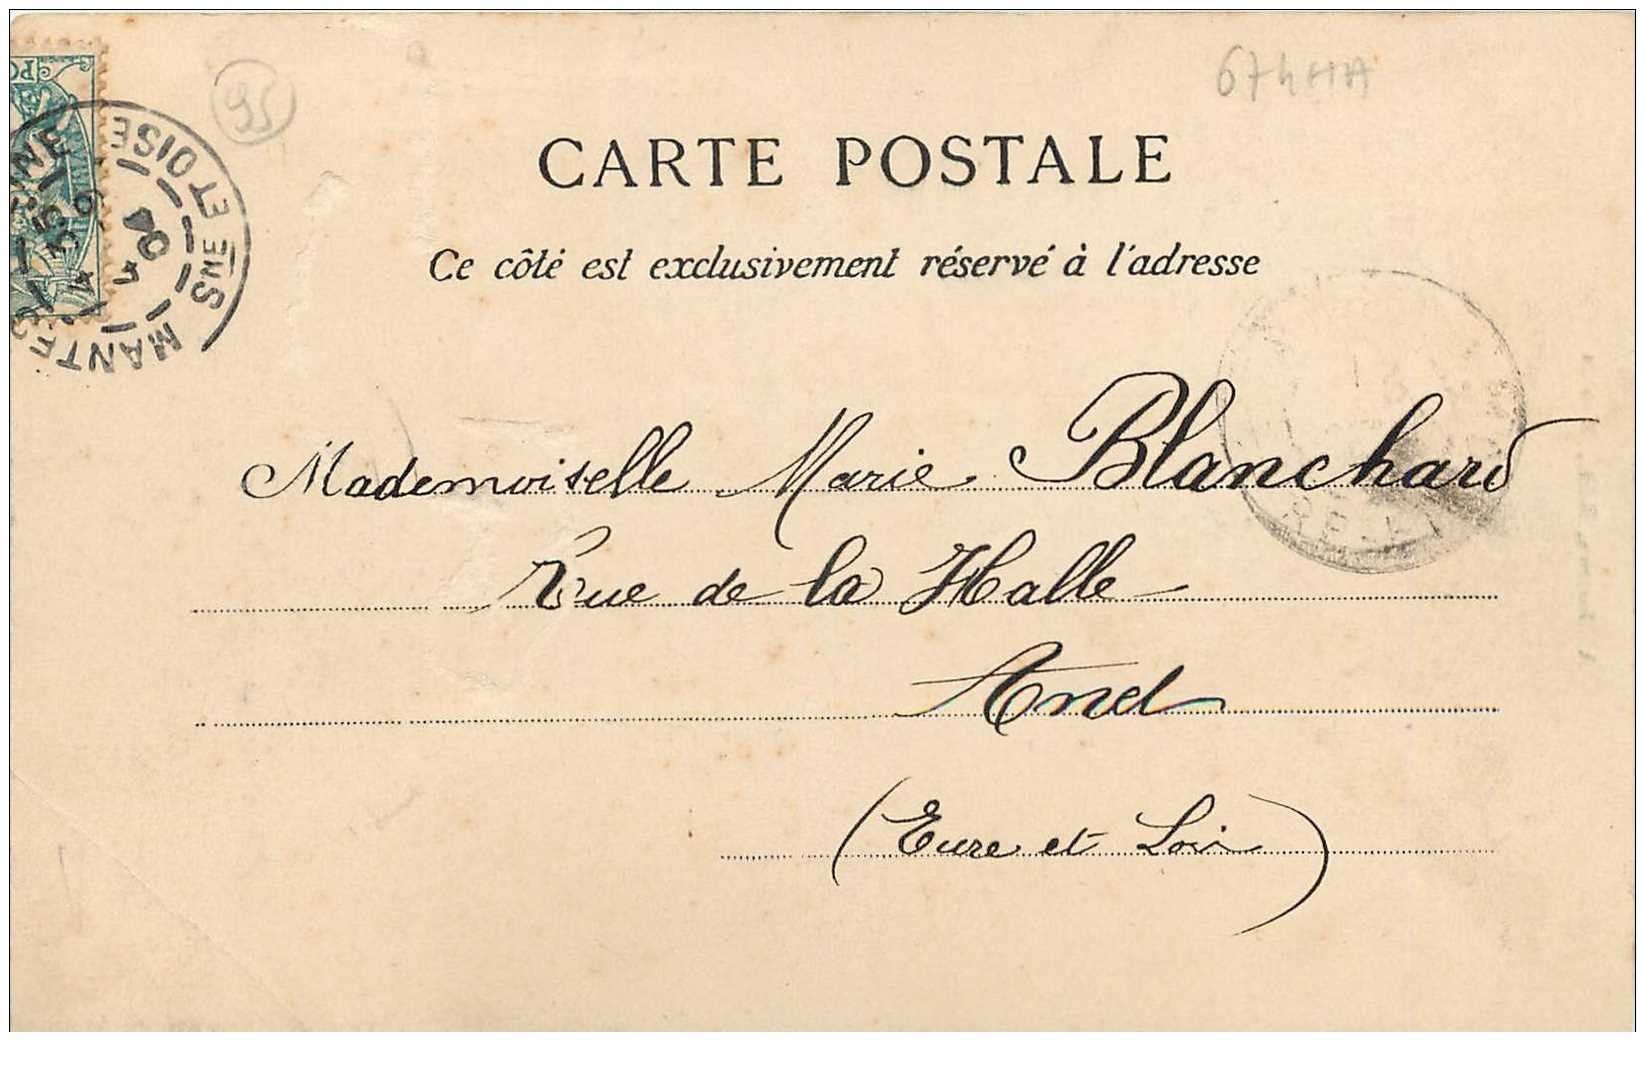 95
674HA
CARTE POSTALE
Ce côté est exclusivement réservé à l'adresse
MANTES
SNE ET OISE
04
Mademoiselle Marie Blanchard
Rue de la Halle
Anet
(Eure et Loir)